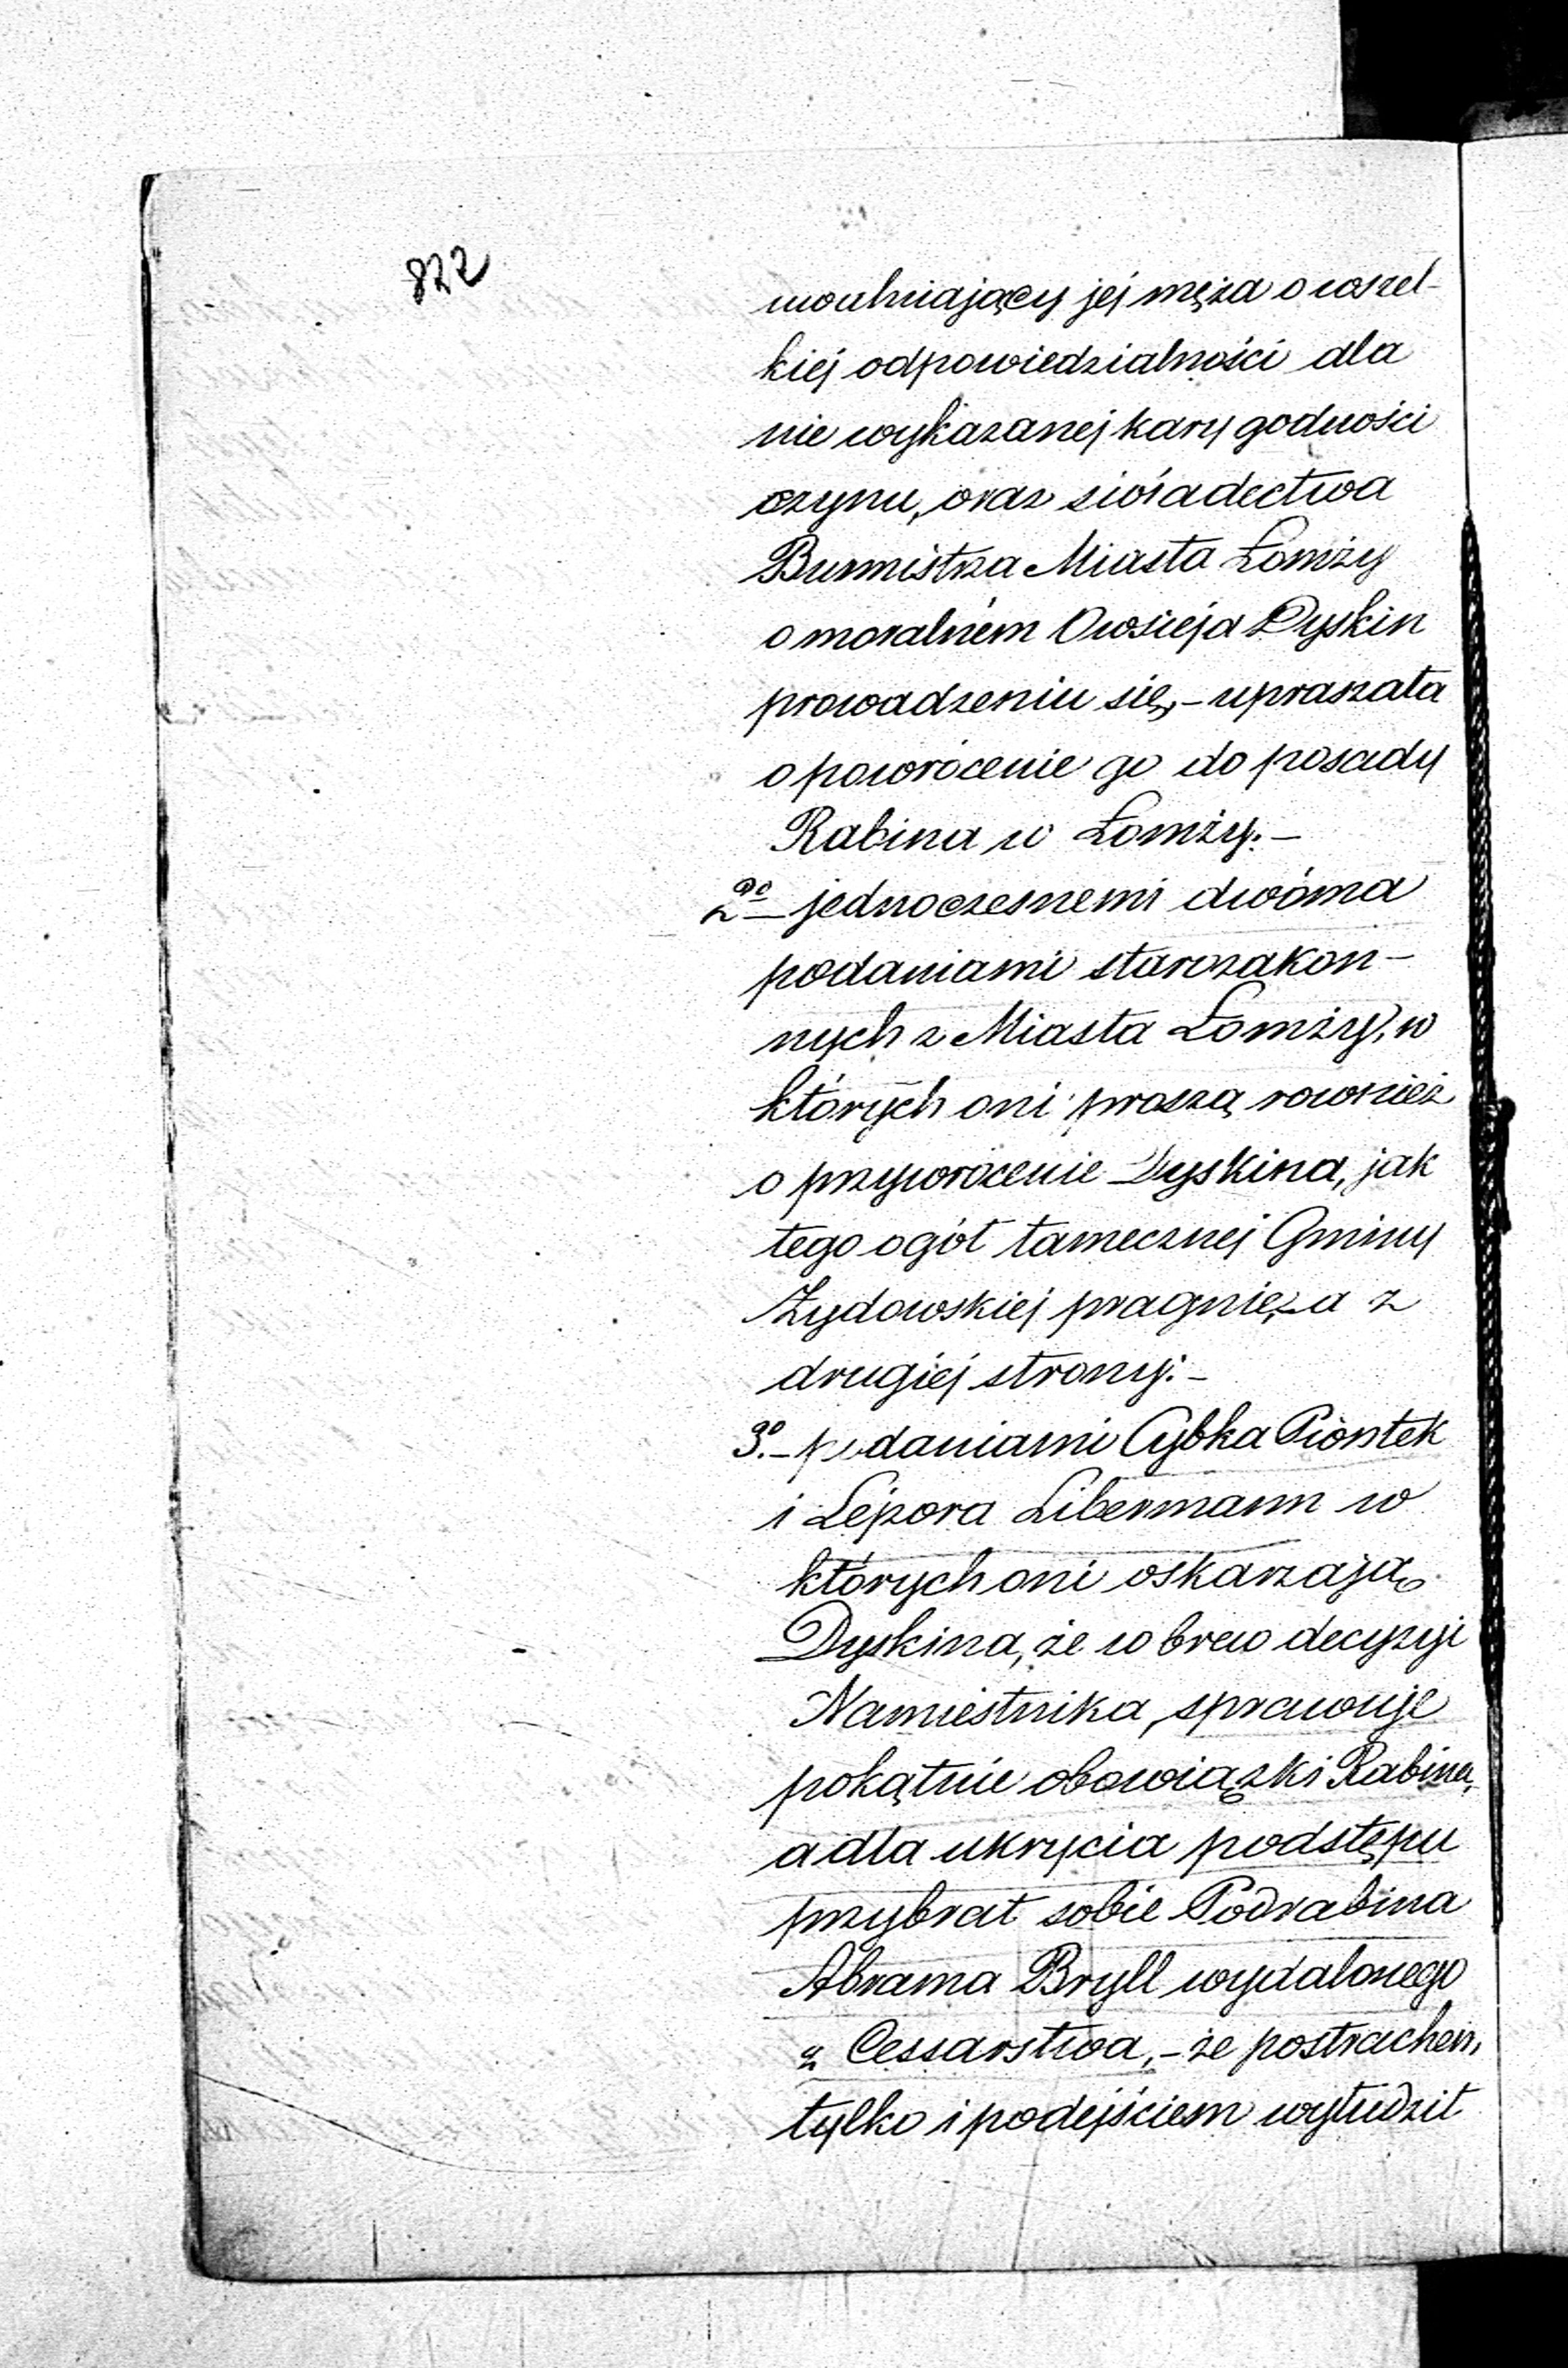 822
uwolniający jéj męża o wszel-
kiéj odpowiedzialności dla
nie wykazanéj kary godności
czynu, oraz świadectwa
Burmistrza Miasta Łomży
o moralném Owsieja Dyskin
prowadzeniu się,- upraszała
o powrócenie go do posady
Rabina w Łomży.-
2do jednoczesnemi dwóma
podaniami starozakon-
nych z Miasta Łomży, w
których oni proszą rownież
o przywrócenie Dyskina, jak
tego ogół tamecznéj Gminy
Żydowskiéj pragnie, a z
drugiéj strony:-
3o.- podaniami Cybka Piontek
i Lejzora Libermann w
których oni oskarzają
Dyskina, że w brew decyzyi
Namiestnika, sprawuje
pokątnie obowiązki Rabina,
a dla ukrycia podstępu
przybrał sobie Podrabina
Abrama Bryll wydalonego
z Cessarstwa,- że postrachem,
tylko i podejściem wyłudził